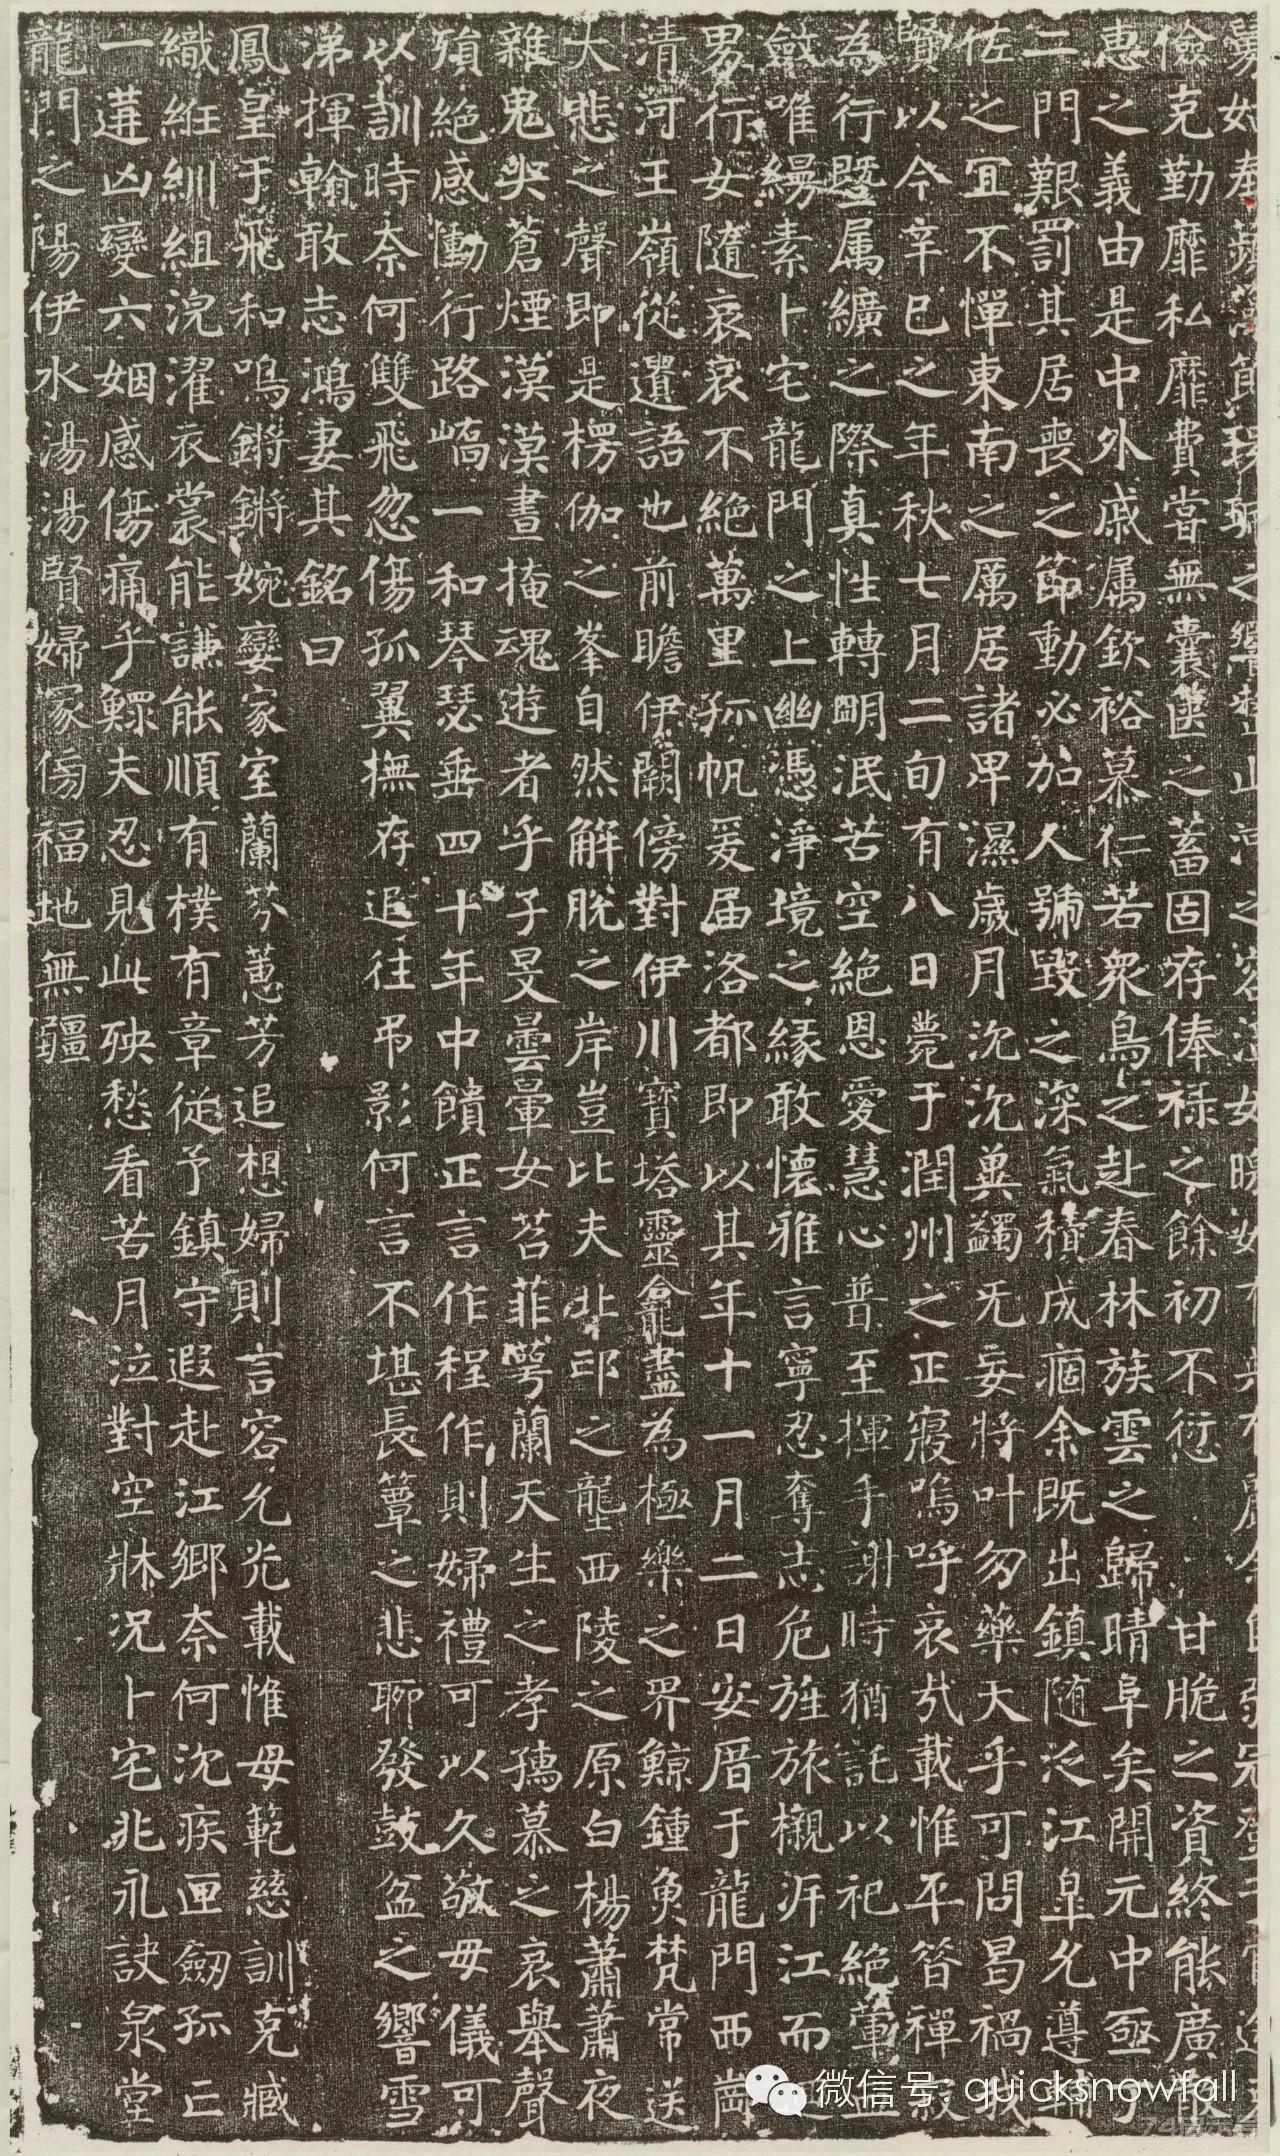 儉克勤靡私靡費嘗無囊篋之蓄固存俸祿之餘初不愆甘脆之資終能廣散
惠之義由是中外戚属欽裕慕仁若衆鳥之赴春林族雲之歸晴阜矣開元中亟
二門艱罰其居喪之節動必加人號毀之深氣積成痼余既出鎮随泛江皐允遵輔
佐之宜不憚東南之厲居諸卑濕歲月沈沈冀蠲无妄將叶勿藥天乎可問曷禍我
賢以今辛巳之年秋七月二旬有八日薨于潤州之正寢嗚呼哀㢤載惟平昔禪寂
為行暨属纊之際真性轉明泯苦空絶恩愛慧心普至揮手謝時猶託以祀絶葷血
斂唯縵素卜宅龍門之上幽憑淨境之緣敢懷雅言寧忍奪志危旌旅櫬泝江而
男行女隨哀哀不絶萬里孤帆爰届洛都即以其年十一月二日安厝于龍門西崗
清河王嶺從遺語也前瞻伊闕傍對伊川寶塔靈龕盡為極樂之界鯨鍾魚梵常送
大悲之聲即是楞伽之峯自然解脫之岸豈比夫北邙之壟西陵之原白楊蕭蕭夜
雜鬼哭蒼煙漠漠晝掩魂遊者乎子旻曇暈女苕菲萼蘭天生之孝孺慕之哀舉聲
殞絶感慟行路嶠一和琴瑟垂四十年中饋正言作程作則婦禮可以久敬母儀可
以訓時奈何雙飛忽傷孤翼撫存追往弔影何言不堪長簟之悲聊發鼓盆之響雪
涕揮翰敢志鴻妻其銘曰
鳳皇于飛和鳴鏘鏘婉孌家室蘭芬蕙芳追想婦則言容允光載惟母範慈訓克臧
織絍紃組浣濯衣裳能謙能順有樸有章從予鎮守遐赴江鄉奈何沈疾匣劒孤亡
一遘凶變六姻感傷痛乎鰥夫忍見此殃愁看苦月泣對空牀況卜宅兆永訣泉堂
龍門之陽伊水湯湯賢婦冢傍福地無疆
微信号: quicksnowfall